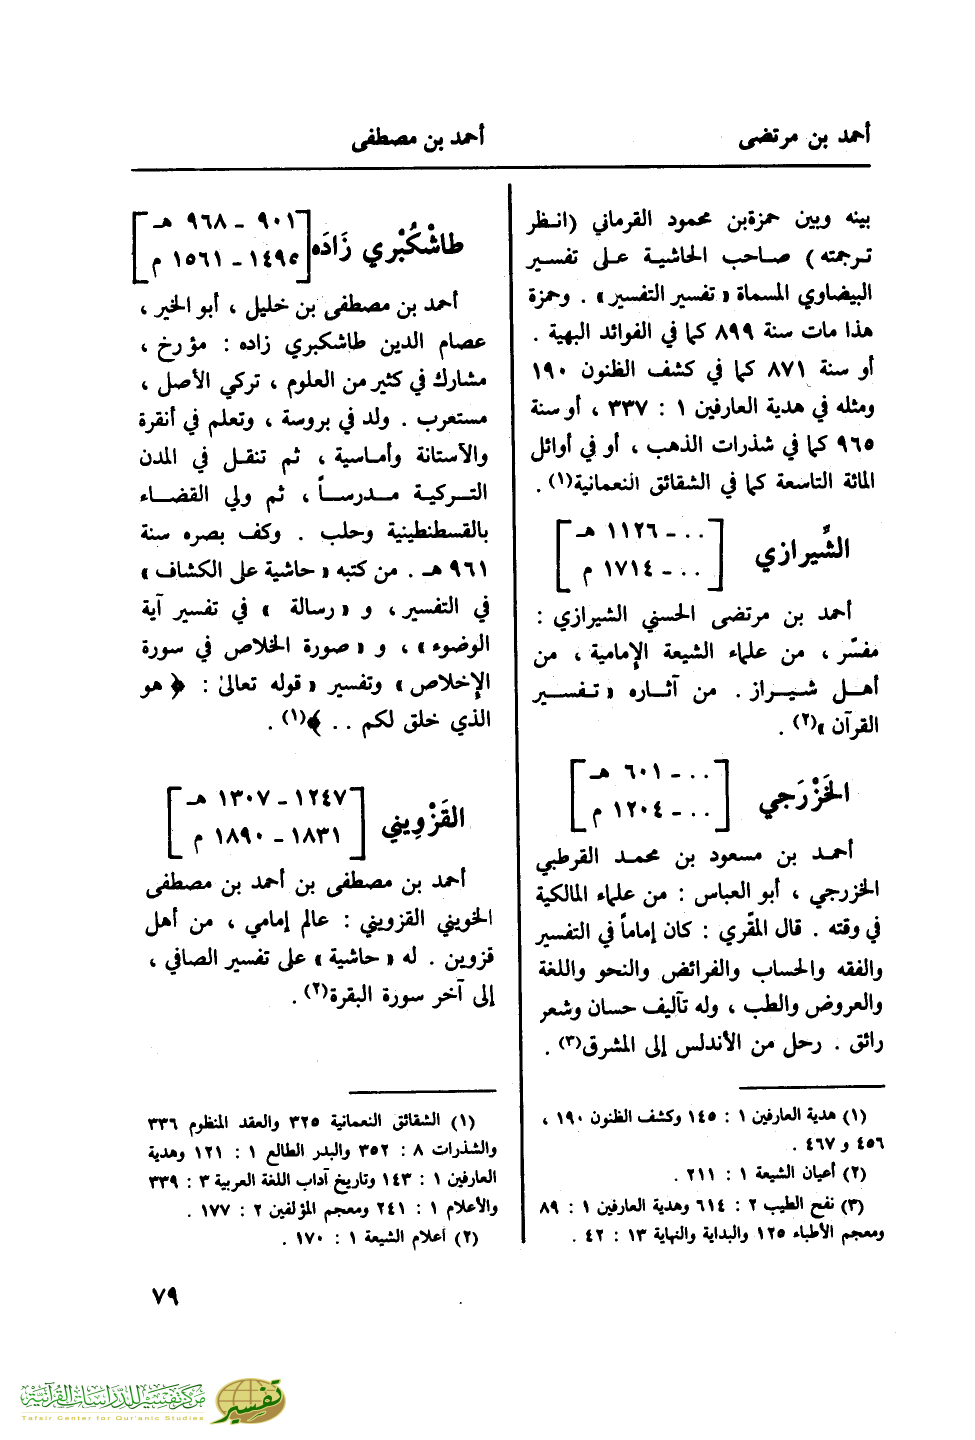 أحمد بن مرتضى
أحمد بن مصطفى
بينه وبين حمزةبن محمود القرماني (انـظر
ترجمته) صاحب الحاشية على تفسير
البيضاوي المسماة « تفسير التفسير» . وحمزة
هذا مات سنة ٨٩٩ كما في الفوائد البهية .
أو سنة ٨٧١ كما في كشف الظنون ١٩٠
ومثله في هدية العارفين ١ : ٣٣٧ ، أو سنة
٩٦٥ كما في شذرات الذهب ، أو في أوائل
المائة التاسعة كما في الشقائق النعمانية(١) .
الشِّيرازي
[ . . . ـ ١١٢٦ هـ
. . . ـ ١٧١٤ م ]
أحمد بن مرتضى الحسني الشيرازي :
مفسّر ، من علماء الشيعة الإمامية ، من
أهل شيراز . من آثاره « تفسير
القرآن »(٢) .
الخَزْرَجي
[ . . . ـ ٦٠١ هـ
. . . ـ ١٢٠٤ م ]
أحمد بن مسعود بن محمد القرطبي
الخزرجي ، أبو العباس : من علماء المالكية
في وقته . قال المقّري : كان إماماً في التفسير
والفقه والحساب والفرائض والنحو واللغة
والعروض والطب ، وله تآليف حسان وشعر
رائق . رحل من الأندلس إلى المشرق(٣) .
(١) هدية العارفين ١ : ١٤٥ وكشف الظنون ١٩٠ ،
٤٥٦ و ٤٦٧ .
(٢) أعيان الشيعة ١ : ٢١١ .
(٣) نفح الطيب ٢ : ٦١٤ وهدية العارفين ١ : ٨٩
ومعجم الأطباء ١٢٥ والبداية والنهاية ١٣ : ٤٢ .
طاشْكُبْري زَادَه
[ ٩٠١ ـ ٩٦٨ هـ
١٤٩٥ ـ ١٥٦١ م ]
أحمد بن مصطفى بن خليل ، أبو الخير ،
عصام الدين طاشكبري زاده : مؤرخ ،
مشارك في كثير من العلوم ، تركي الأصل ،
مستعرب . ولد في بروسة ، وتعلم في أنقرة
والآستانة وأماسية ، ثم تنقل في المدن
التركية مدرساً ، ثم ولي القضاء
بالقسطنطينية وحلب . وكف بصره سنة
٩٦١ هـ . من كتبه « حاشية على الكشاف »
في التفسير ، و « رسالة » في تفسير آية
الوضوء » ، و « صورة الخلاص في سورة
الإخلاص » وتفسير « قوله تعالىٰ : ﴿ هو
الذي خلق لكم . . ﴾(١) .
القَزْوِيني
[ ١٢٤٧ ـ ١٣٠٧ هـ
١٨٣١ ـ ١٨٩٠ م ]
أحمد بن مصطفى بن أحمد بن مصطفى
الخويني القزويني : عالم إمامي ، من أهل
قزوين . له « حاشية » على تفسير الصافي ،
إلى آخر سورة البقرة(٢) .
(١) الشقائق النعمانية ٣٢٥ والعقد المنظوم ٣٣٦
والشذرات ٨ : ٣٥٢ والبدر الطالع ١ : ١٢١ وهدية
العارفين ١ : ١٤٣ وتاريخ آداب اللغة العربية ٣ : ٣٣٩
والأعلام ١ : ٢٤١ ومعجم المؤلفين ٢ : ١٧٧ .
(٢) أعلام الشيعة ١ : ١٧٠ .
٧٩
مركز تفسير للدراسات القرآنية
Tafsir Center for Qur'anic Studies
تفسير